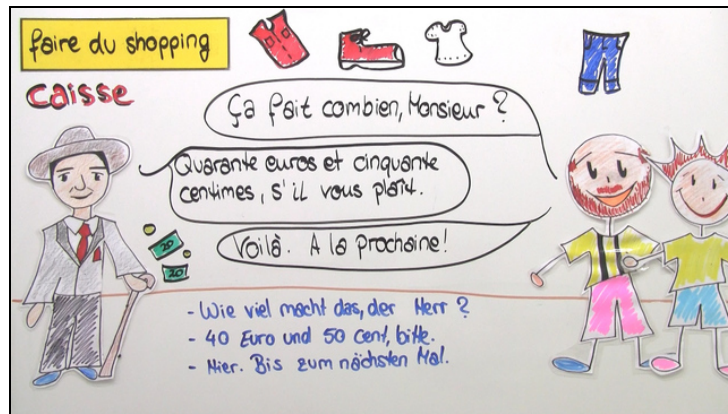 faire du shopping
caisse
Ça fait combien, Monsieur ?
Quarante euros et cinquante
centimes, s'il vous plaît.
Voilà. A la prochaine!
20
20
- Wie viel macht das, der Herr ?
- 40 Euro und 50 Cent, bitte.
- Hier. Bis zum nächsten Mal.